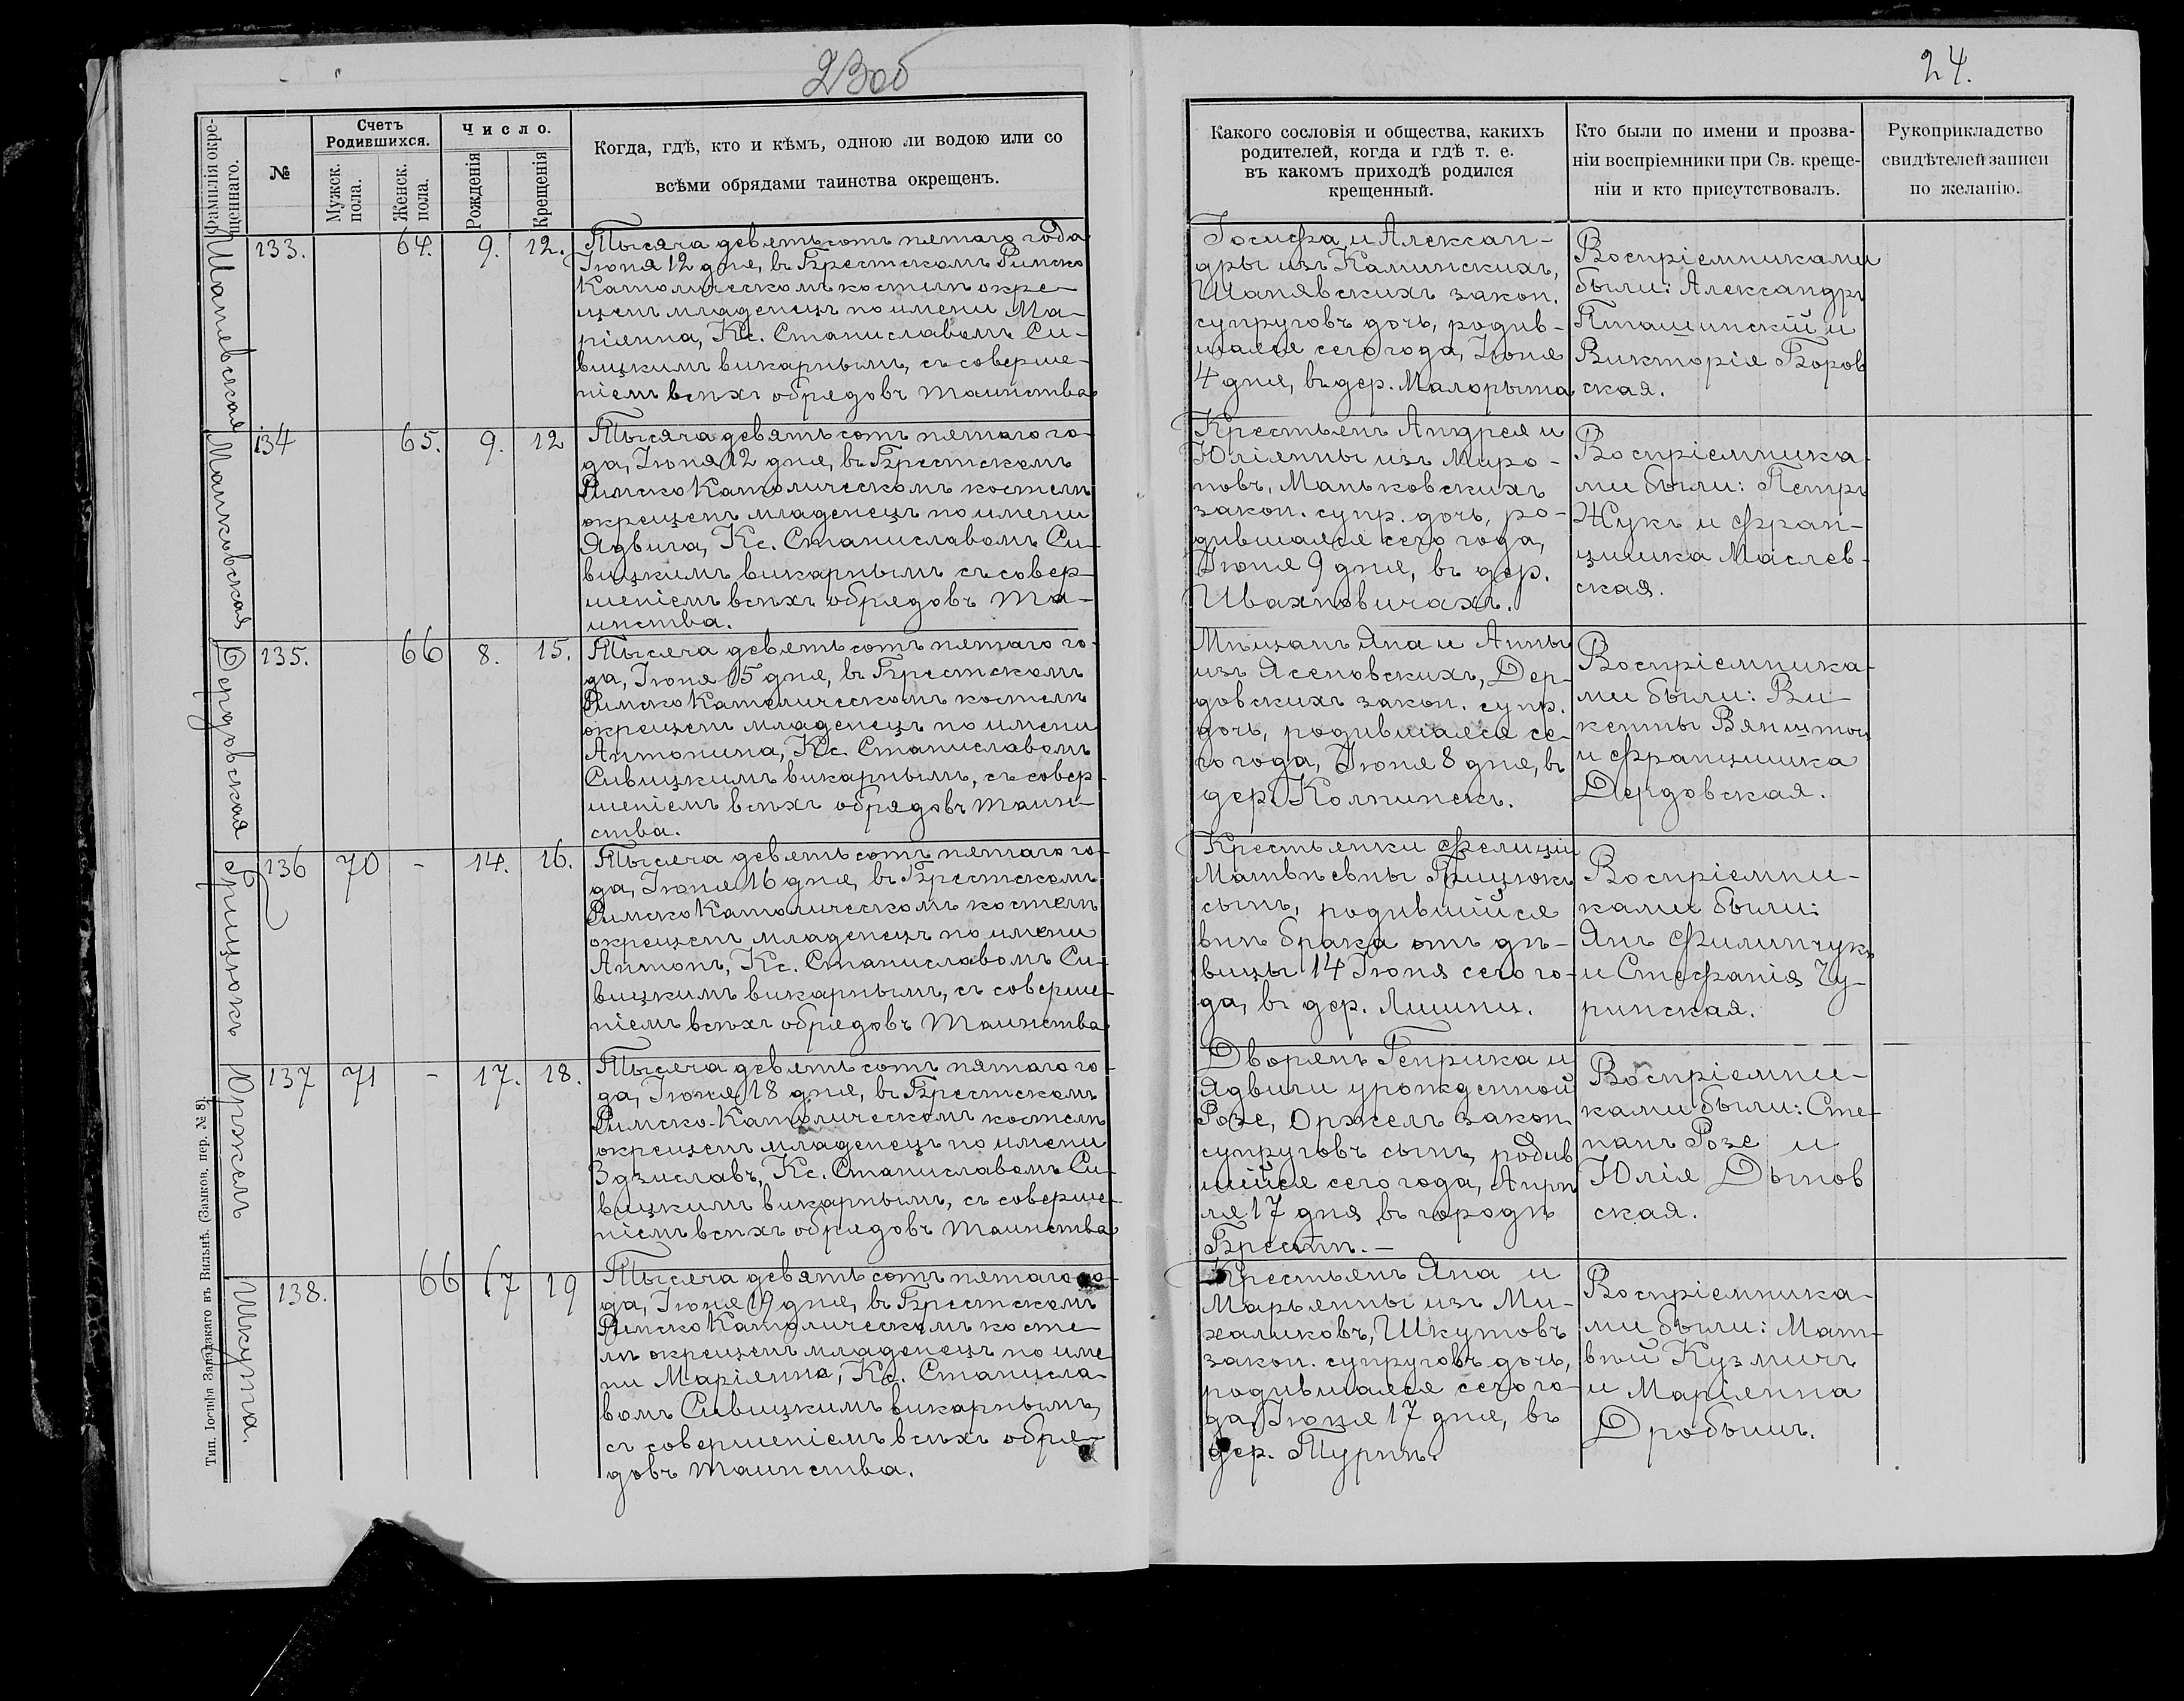 23об
24.
Фамилія окре-
щеннаго.
№
Счетъ
Родившихся.
Мужск.
пола.
Женск.
пола.
Число.
Рожденія
Крещенія
Когда, гдѣ, кто и кѣмъ, одною ли водою или со
всѣми обрядами таинства окрещенъ.
Какого сословія и общества, какихъ
родителей, когда и гдѣ т. е.
въ какомъ приходѣ родился
крещенный.
Кто были по имени и прозва-
ніи воспріемники при Св. креще-
ніи и кто присутствовалъ.
Рукоприкладство
свидѣтелей записи
по желанію.
133.
64.
9.
12.
Тысяча девятьсотъ пятаго года
Іюня 12 дня, въ Брестскомъ Римско
Католическомъ костелѣ окре-
щенъ младенецъ по имени Ма-
ріянна, Кс. Станиславомъ Си-
вицкимъ викарнымъ, съ соверше-
ніемъ всѣхъ обрядовъ таинства
Іосифа и Алексан-
дры изъ Калинскихъ,
закон.
супруговъ дочь, родив-
шаяся сего года, Іюня
4 дня, въ дер. Малорыта
Воспріемниками
были: Александръ
Пташинскій и
Викторія Боров
ская.
Маньковская
134
65.
9.
12
Тысяча девятьсотъ пятаго го-
да, Іюня 12 дня, въ Брестскомъ
Римско Католическомъ костелѣ
окрещенъ младенецъ по имени
Ядвига, Кс. Станиславомъ Си-
вицкимъ викарнымъ съ совер-
шеніемъ всѣхъ обрядовъ та-
инства.
Крестьянъ Андрея и
Юліянны изъ Миро-
новъ, Маньковскихъ
закон. супр. дочь, ро-
дившаяся сего года,
Іюня 9 дня, въ дер.
Ивахновичахъ.
Воспріемника-
ми были: Петръ
Жукъ и Фран-
цишка Маслев-
ская.
Дердовская
135.
66
8.
15.
Тысяча девятьсотъ пятаго го-
да, Іюня 15 дня, въ Брестскомъ
Римско Католическомъ костелѣ
окрещенъ младенецъ по имени
Антонина, Кс. Станиславомъ
Сивицкимъ викарнымъ, съ совер-
шеніемъ всѣхъ обрядовъ таин-
ства.
Мѣщанъ Яна и Анны
изъ Ясеновскихъ, Дер-
довскихъ закон. супр.
дочь, родившаяся се-
го года, Іюня 8 дня, въ
дер. Колпинскъ.
Воспріемника-
ми были: Ви-
кенты
и Францишка
Дердовская.
Грицюкъ
136
70
-
14.
16.
Тысяча девятьсотъ пятаго го-
да, Іюня 16 дня, въ Брестскомъ
Римско Католическомъ костелѣ
окрещенъ младенецъ по имени
Антонъ, Кс. Станиславомъ Си-
вицкимъ викарнымъ, съ соверше-
ніемъ всѣхъ обрядовъ таинства
Крестьянки Фелиціи
Матвѣевны Грицюкъ
сынъ, родившійся
внѣ брака отъ дѣ-
вицы 14 Іюня сего го-
да, въ дер. Лищи.
Воспріемни-
ками были:
Янъ Филипчукъ
и Стефанія Чу-
ринская.
Оржель
137
71
-
17.
18.
Тысяча девятьсотъ пятаго го-
да, Іюня 18 дня, въ Брестскомъ
Римско-Католическомъ костелѣ
окрещенъ младенецъ по имени
Здзиславъ, Кс. Станиславомъ Си-
вицкимъ викарнымъ, съ соверше-
ніемъ всѣхъ обрядовъ таинства
Дворянъ Генрика и
Ядвиги урожденной
Розе, Оржель закон
супруговъ сынъ, родив
шійся сего года, Апрѣ
ля 17 дня въ городѣ
Брестѣ.-
Воспріемни-
ками были: Сте-
панъ Розе и
Юлія Дымов
ская.
Шкута.
138.
66
17
19
Тысяча девятьсотъ пятаго го-
да, Іюня 19 дня, въ Брестскомъ
Римско Католическомъ косте
лѣ окрещенъ младенецъ по име
ни Маріянна, Кс. Станисла-
вомъ Сивицкимъ викарнымъ,
съ совершеніемъ всѣхъ обря-
довъ таинства.
Крестьянъ Яна и
Марьянны изъ Ми-
халиковъ, Шкутовъ
закон. супруговъ дочь,
родившаяся сего го-
да, Іюня 17 дня, въ
дер. Турнѣ.
Воспріемника-
ми были: Мат-
вѣй Кузмичъ
и Маріянна
Дробышъ.
Тип. Іосифа Завадзкаго въ Вильнѣ. (Замков. пер. № 8).